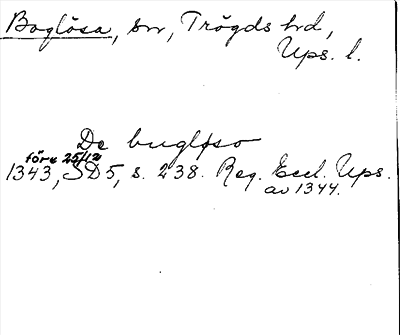 Boglösa, sn, Trögds hd,
Ups. l.
De bugløso
före 25/12
1343, SD5, s. 238. Reg. Eccl. Ups.
av 1344.